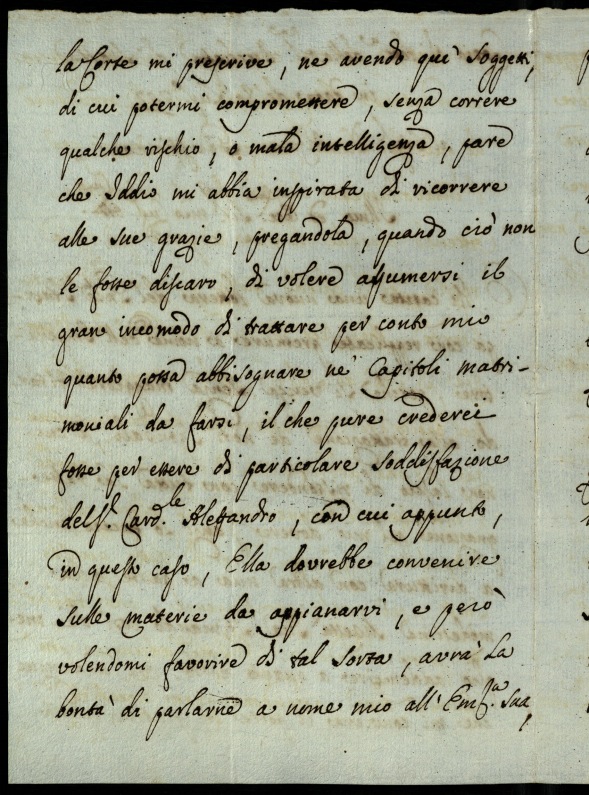 la Corte mi prescrive, ne avendo quì Soggetti,
di cui potermi compromettere, senza correre
qualche rischio, o mala intelligenza, pare
che Iddio mi abbia inspirata di ricorrere
alle sue grazie, pregandola, quando ciò non
le fosse discaro, di volere assumersi il
gran incomodo di trattare per conto mio
quanto possa abbisognare ne' Capitoli matri-
moniali da farsi, il che pure crederei
fosse per essere di particolare Soddisfazione
del S.r Card.le Alessandro, con cui appunto,
in questo caso, Ella dovrebbe convenire
sulle materie da appianarvi, e però
volendomi favorire di tal sorta, avrà La
bontà di parlarne a nome mio all' Em.za Sua,